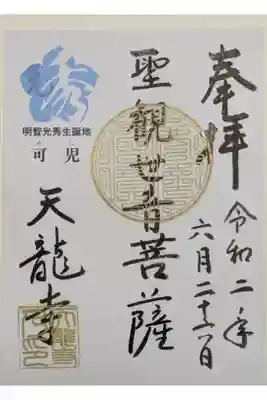 奉拝
令和二年
六月
聖觀世音菩薩
明智光秀生誕地
可児
天龍寺